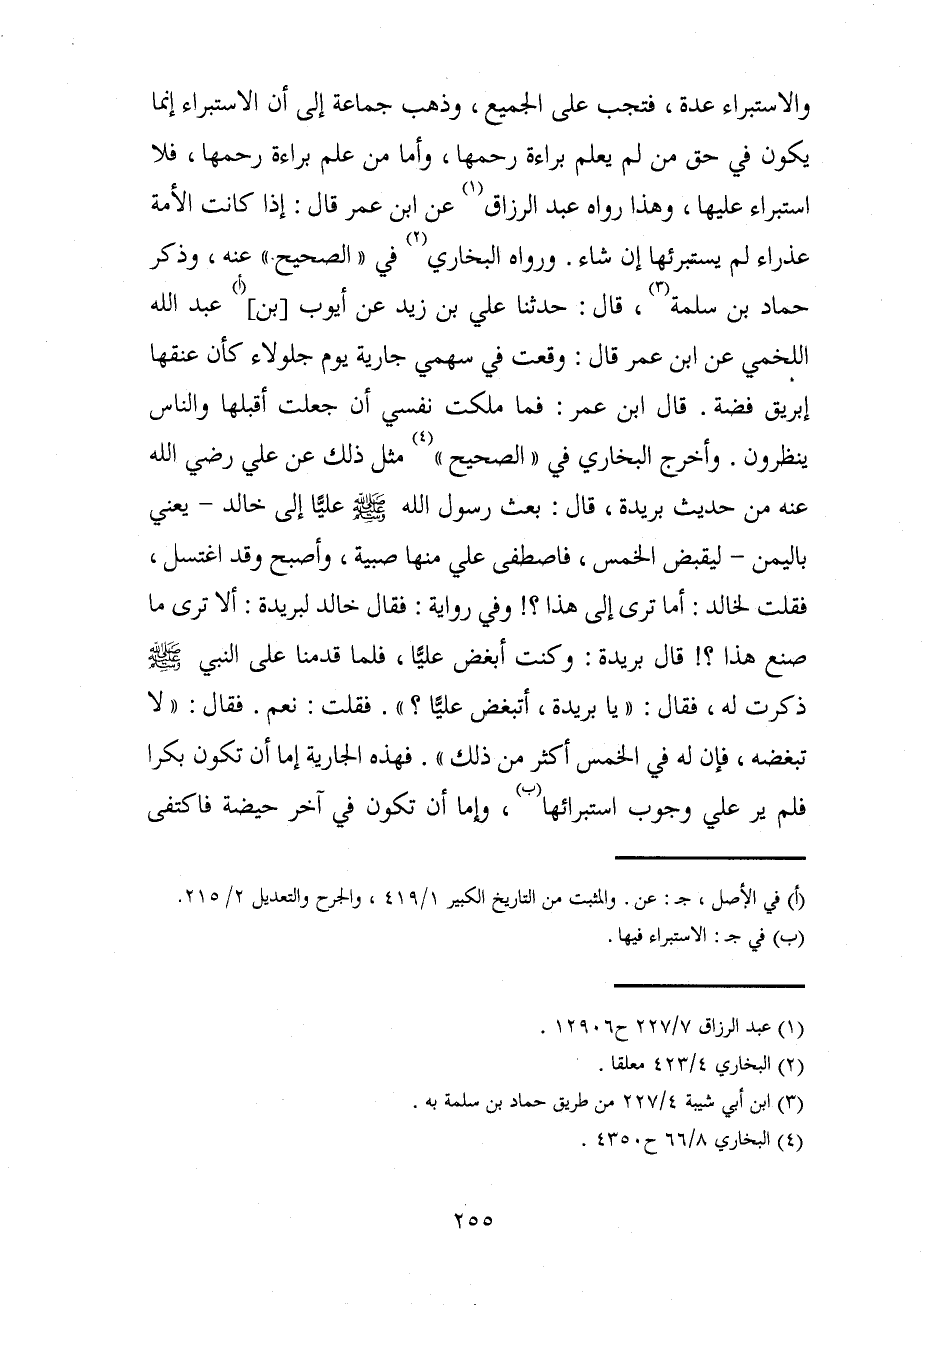 والاستبراء عدة ، فتجب على الجميع ، وذهب جماعة إلى أن الاستبراء إنما
يكون في حق من لم يعلم براءة رحمها ، وأما من علم براءة رحمها ، فلا
استبراء عليها ، وهذا رواه عبد الرزاق(١) عن ابن عمر قال : إذا كانت الأمة
عذراء لم يستبرئها إن شاء . ورواه البخاري(٢) في « الصحيح » عنه ، وذكر
حماد بن سلمة(٣) ، قال : حدثنا علي بن زيد عن أيوب [بن](أ) عبد الله
اللخمي عن ابن عمر قال : وقعت في سهمي جارية يوم جلولاء كأن عنقها
إبريق فضة . قال ابن عمر : فما ملكت نفسي أن جعلت أقبلها والناس
ينظرون . وأخرج البخاري في « الصحيح »(٤) مثل ذلك عن علي رضي الله
عنه من حديث بريدة ، قال : بعث رسول الله ﷺ عليًّا إلى خالد - يعني
باليمن - ليقبض الخمس ، فاصطفى علي منها صبية ، وأصبح وقد اغتسل ،
فقلت لخالد : أما ترى إلى هذا ؟! وفي رواية : فقال خالد لبريدة : ألا ترى ما
صنع هذا ؟! قال بريدة : وكنت أبغض عليًّا ، فلما قدمنا على النبي ﷺ
ذكرت له ، فقال : « يا بريدة ، أتبغض عليًّا ؟ » . فقلت : نعم . فقال : « لا
تبغضه ، فإن له في الخمس أكثر من ذلك » . فهذه الجارية إما أن تكون بكرا
فلم ير علي وجوب استبرائها(ب) ، وإما أن تكون في آخر حيضة فاكتفى
(أ) في الأصل ، جـ : عن . والمثبت من التاريخ الكبير ١/ ٤١٩ ، والجرح والتعديل ٢/ ٢١٥.
(ب) في جـ : الاستبراء فيها .
(١) عبد الرزاق ٧/ ٢٢٧ ح١٢٩٠٦ .
(٢) البخاري ٤/ ٤٢٣ معلقا .
(٣) ابن أبي شيبة ٤/ ٢٢٧ من طريق حماد بن سلمة به .
(٤) البخاري ٨/ ٦٦ ح٤٣٥٠ .
٢٥٥